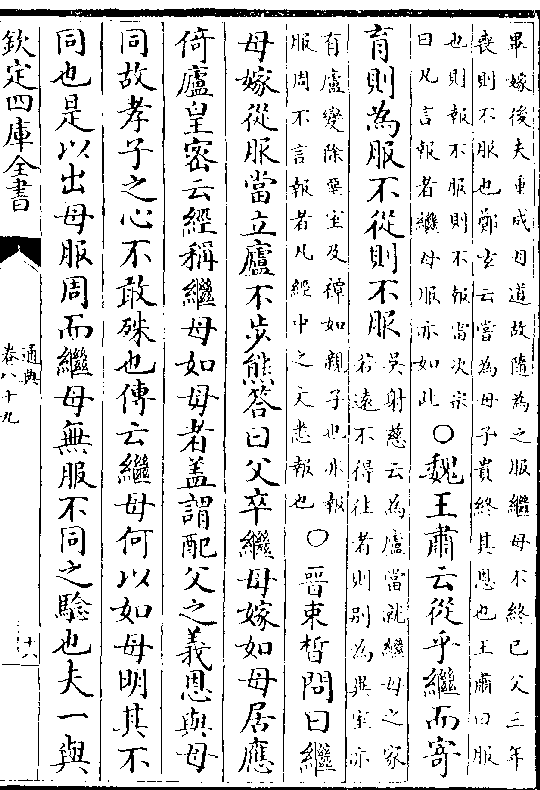 畢嫁後夫重成母道故隨為之服繼母不終已父三年
喪則不服也鄭玄云嘗為母子貴終其恩也王肅曰服
也則報不服則不報雷次宗
曰凡言報者繼母服亦如此○魏王肅云從乎繼而寄
育則為服不從則不服
吳射慈云為廬當就繼母之家
若遠不得往者則别為異室亦
有廬變除堊室及禫如親子也亦報
服周不言報者凡經中之文悉報也○晉束晳問曰繼
母嫁從服當立廬不步熊答曰父卒繼母嫁如母居應
倚廬皇密云經稱繼母如母者盖謂配父之義恩與母
同故孝子之心不敢殊也傳云繼母何以如母明其不
同也是以出母服周而繼母無服不同之驗也夫一與
欽定四庫全書
通典
卷八十九
十八